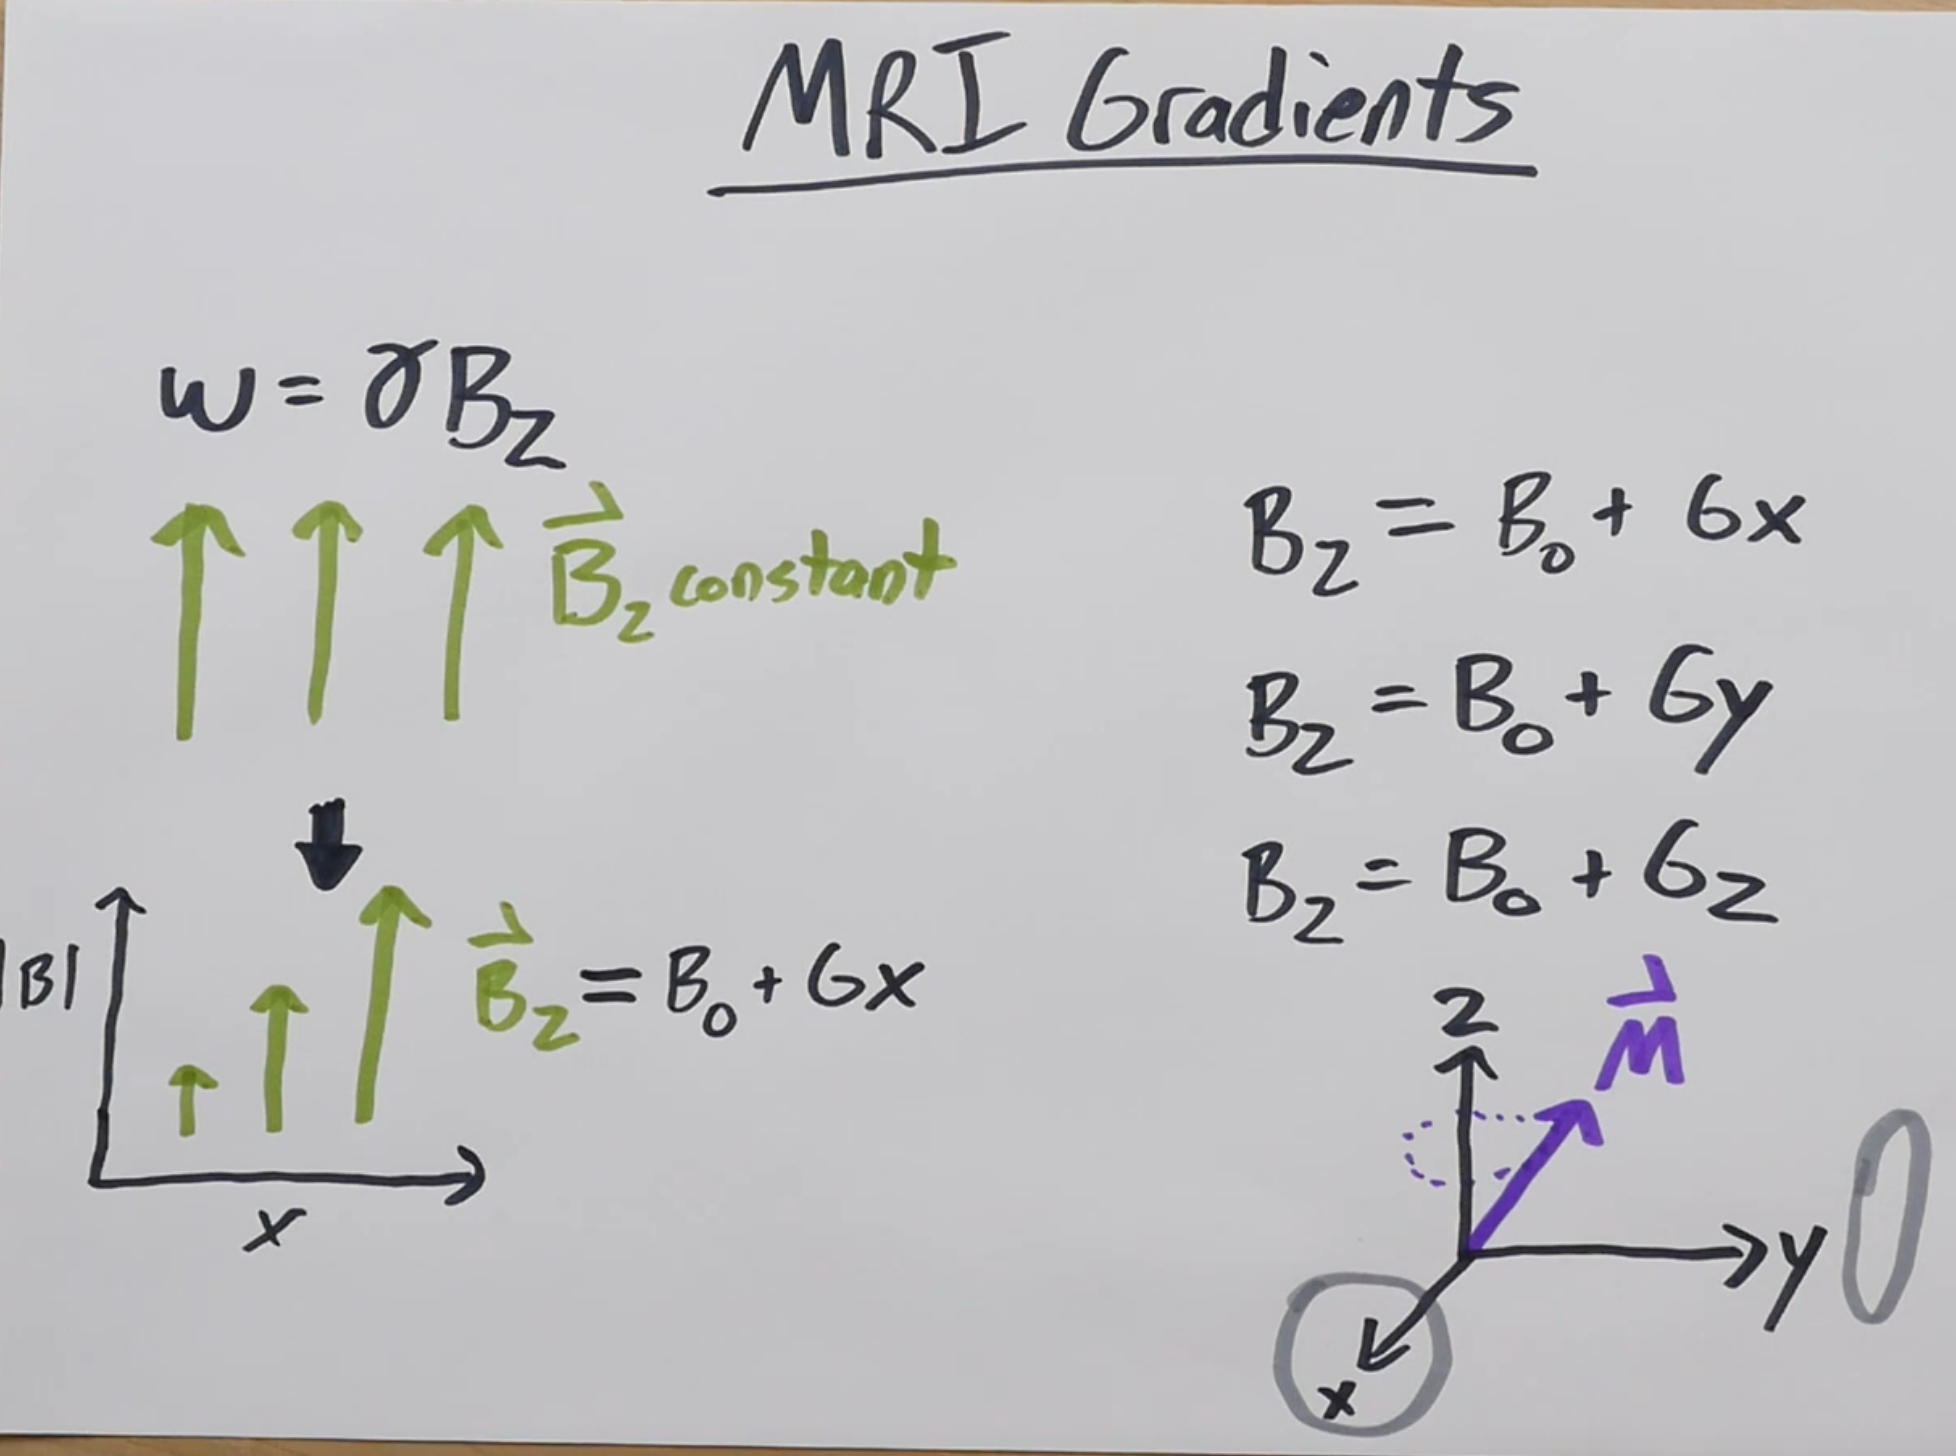 MRI Gradients
ω = γB_z
B⃗_z constant
|B|
B⃗_z = B_0 + Gx
x
B_z = B_0 + Gx
B_z = B_0 + Gy
B_z = B_0 + Gz
z
M⃗
y
x